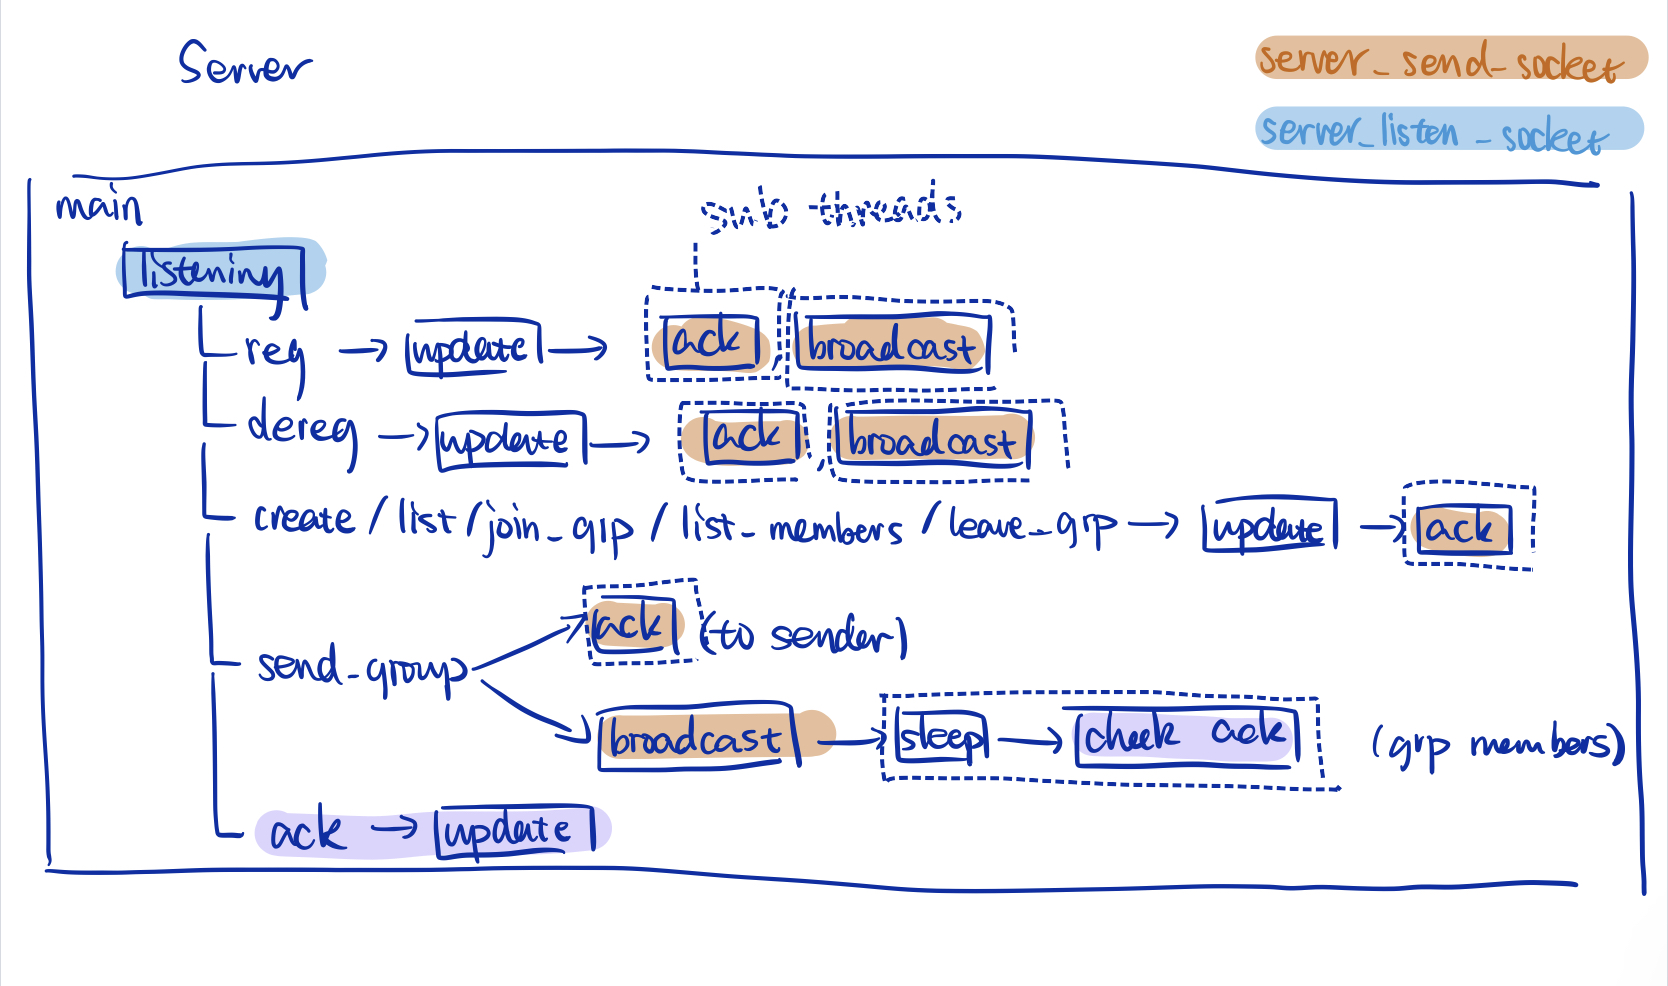 Server
server_send_socket
server_listen_socket
main
sub-threads
listening
req → update → ack , broadcast
dereq → update → ack , broadcast
create / list / join_grp / list_members / leave_grp → update → ack
send_group
ack (to sender)
broadcast → sleep → check ack (grp members)
ack → update